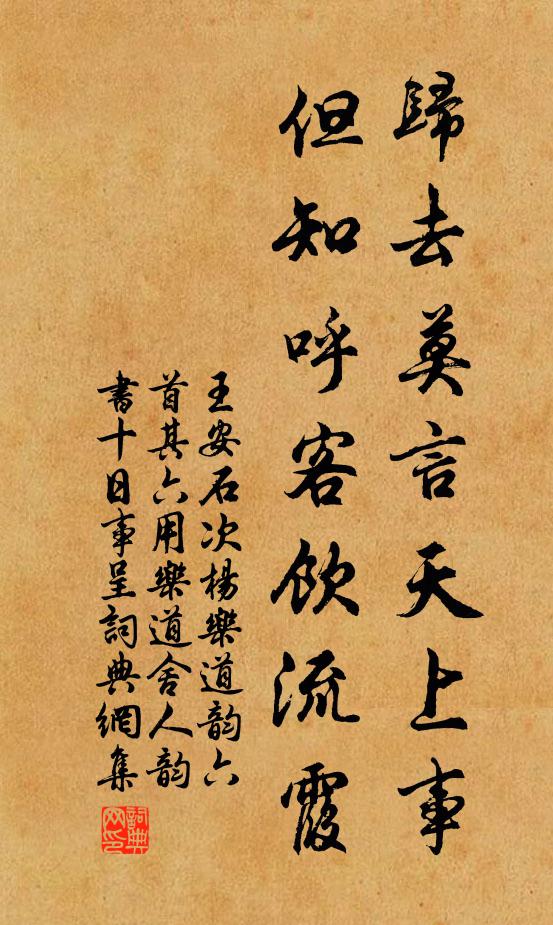 歸去莫言天上事
但知呼客飲流霞
王安石次楊樂道韵六
首其六用樂道舍人韵
書十日事呈詞典網集
詞典
网印